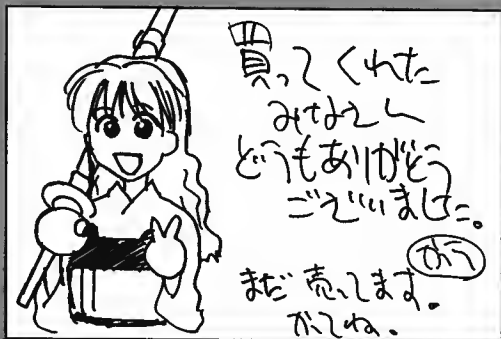 買ってくれた
みなさん
どうもありがとう
ございました。
かう
まだ売ってます。
かってね。